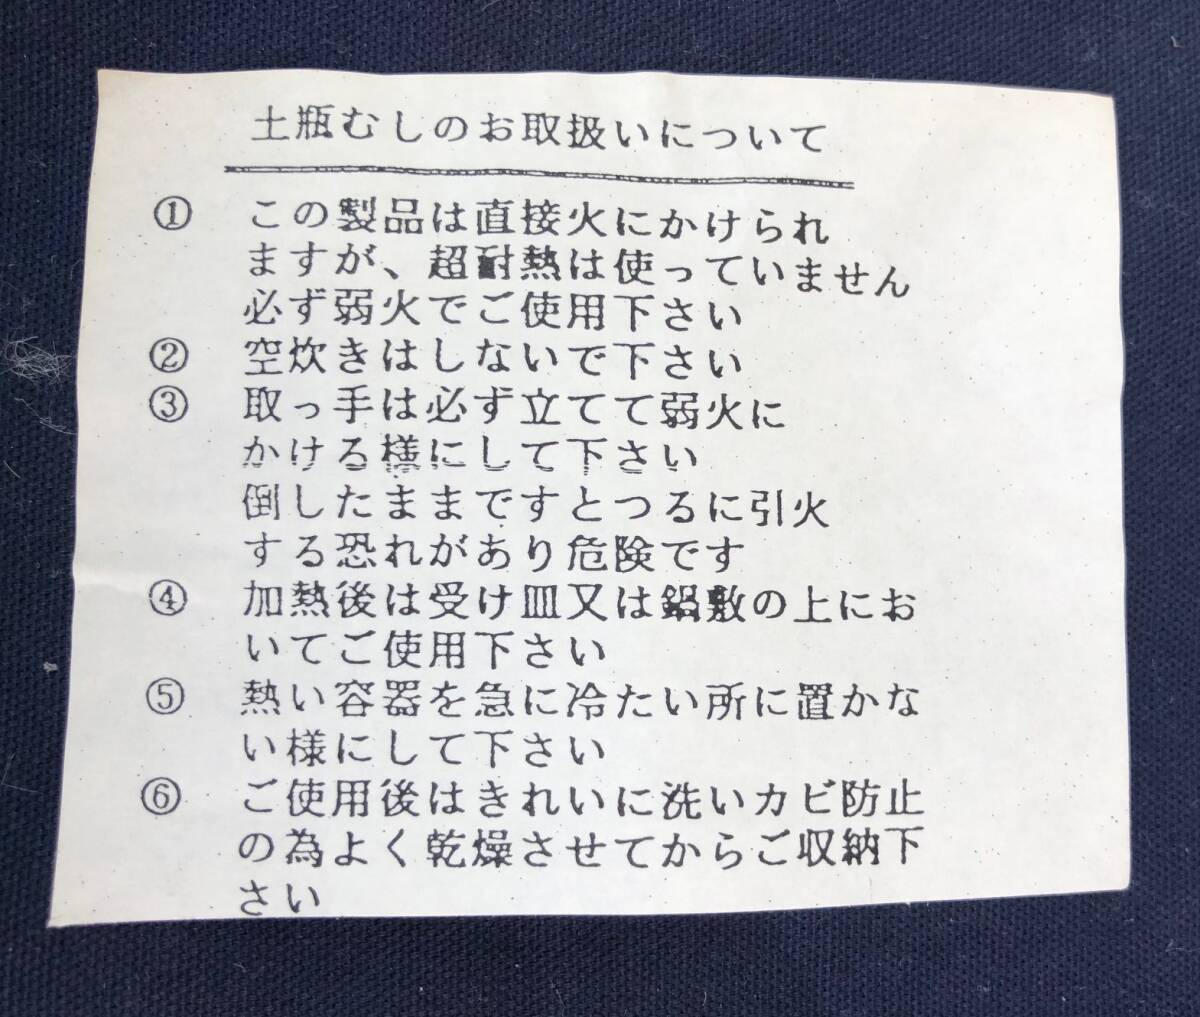 土瓶むしのお取扱いについて
① この製品は直接火にかけられ
ますが、超耐熱は使っていません
必ず弱火でご使用下さい
② 空炊きはしないで下さい
③ 取っ手は必ず立てて弱火に
かける様にして下さい
倒したままですとつるに引火
する恐れがあり危険です
④ 加熱後は受け皿又は鍋敷の上にお
いてご使用下さい
⑤ 熱い容器を急に冷たい所に置かな
い様にして下さい
⑥ ご使用後はきれいに洗いカビ防止
の為よく乾燥させてからご収納下
さい